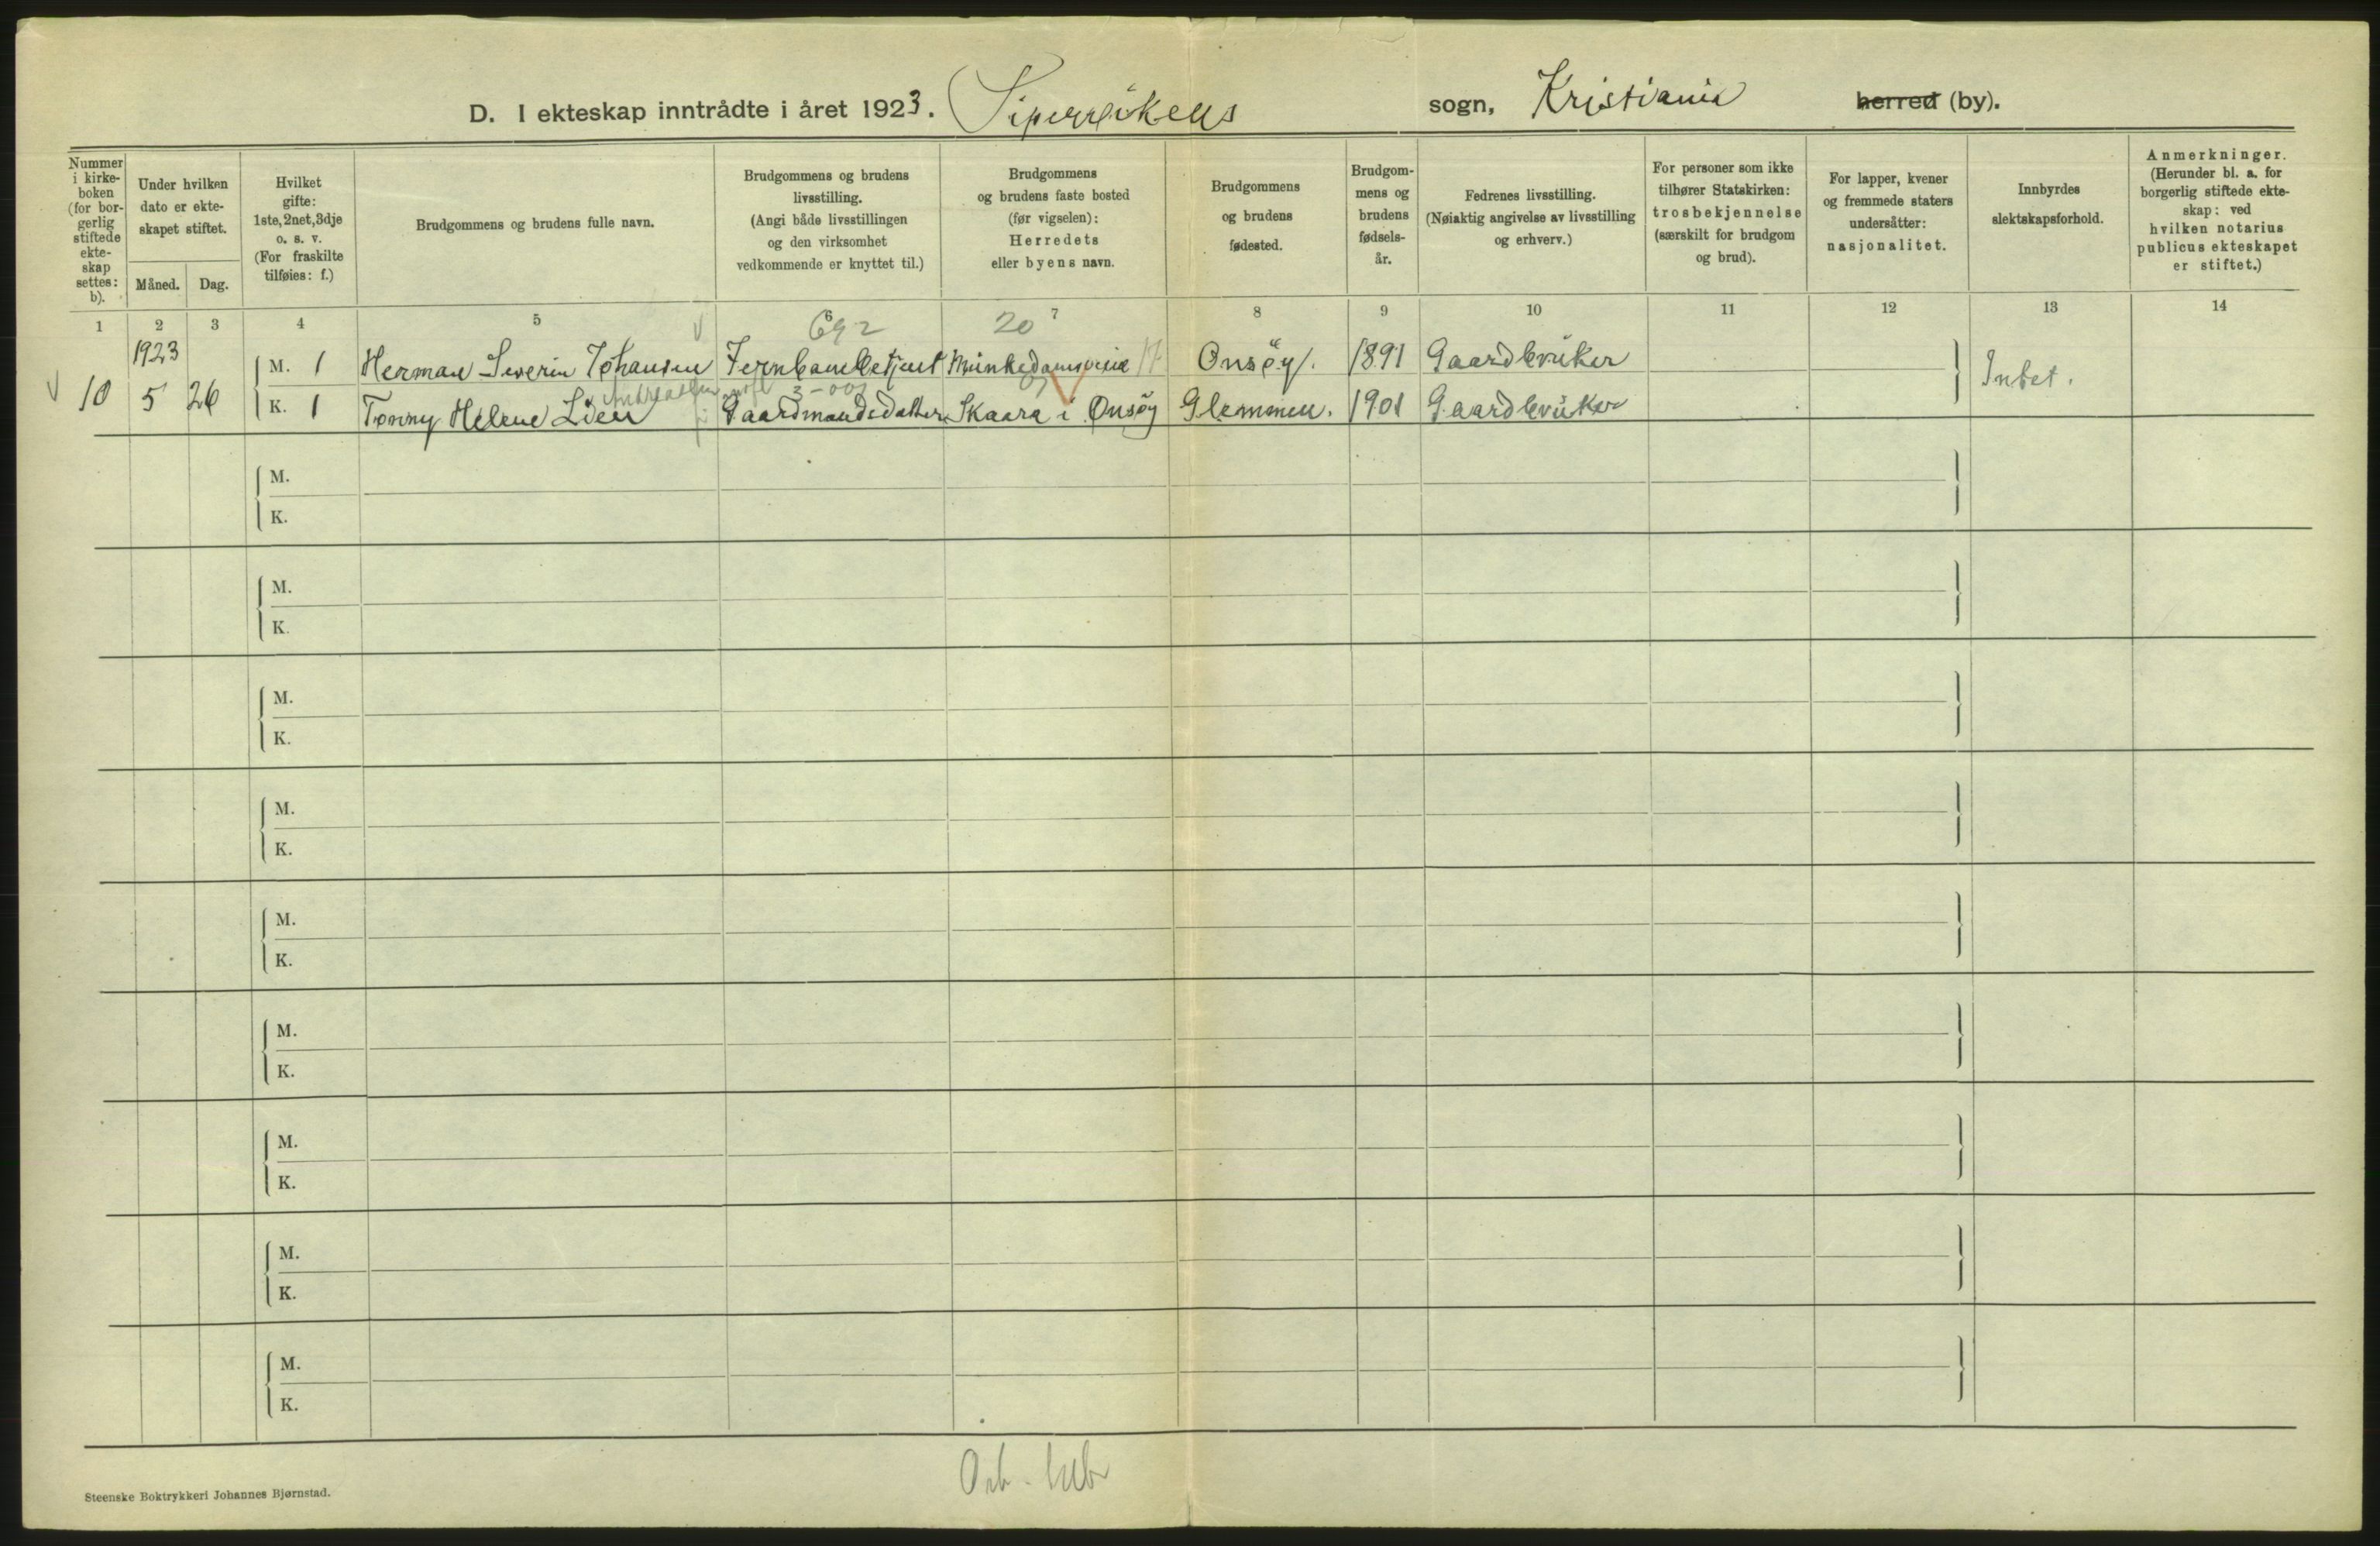 D. I ekteskap inntrådte i året 1923. sogn, Kristiania herred (by).
Nummer i kirke-boken (for bor-gerlig stiftede ekte-skap settes: b).
Under hvilken dato er ekte-skapet stiftet.
Måned. Dag.
Hvilket gifte: 1ste, 2net, 3dje o. s. v. (For fraskilte tilføies: f.)
Brudgommens og brudens fulle navn.
Brudgommens og brudens livsstilling. (Angi både livsstillingen og den virksomhet vedkommende er knyttet til.)
Brudgommens og brudens faste bosted (før vigselen): Herredets eller byens navn.
Brudgommens og brudens fødested.
Brudgom-mens og brudens fødsels-år.
Fedrenes livsstilling. (Nøiaktig angivelse av livsstilling og erhverv.)
For personer som ikke tilhører Statskirken: trosbekjennelse (særskilt for brudgom og brud).
For lapper, kvener og fremmede staters undersåtter: nasjonalitet.
Innbyrdes slektskapsforhold.
Anmerkninger. (Herunder bl. a. for borgerlig stiftede ekte-skap: ved hvilken notarius publicus ekteskapet er stiftet.)
1 2 3 4 5 6 7 8 9 10 11 12 13 14
692 20
1923
M. 1 Herman Severin Johansen Jernbanebetjent Munkedamsveien 17 Onsøy. 1891 Gaardbruker
10 5 26 Intet.
3-001
K. 1 Tonny Helene Lien Gaardmandsdatter Skaara i Onsøy Glemmen. 1901 Gaardbruker
M.
K.
M.
K.
M.
K.
M.
K.
M.
K.
M.
K.
M.
K.
M.
K.
M.
K.
Steenske Boktrykkeri Johannes Bjørnstad.